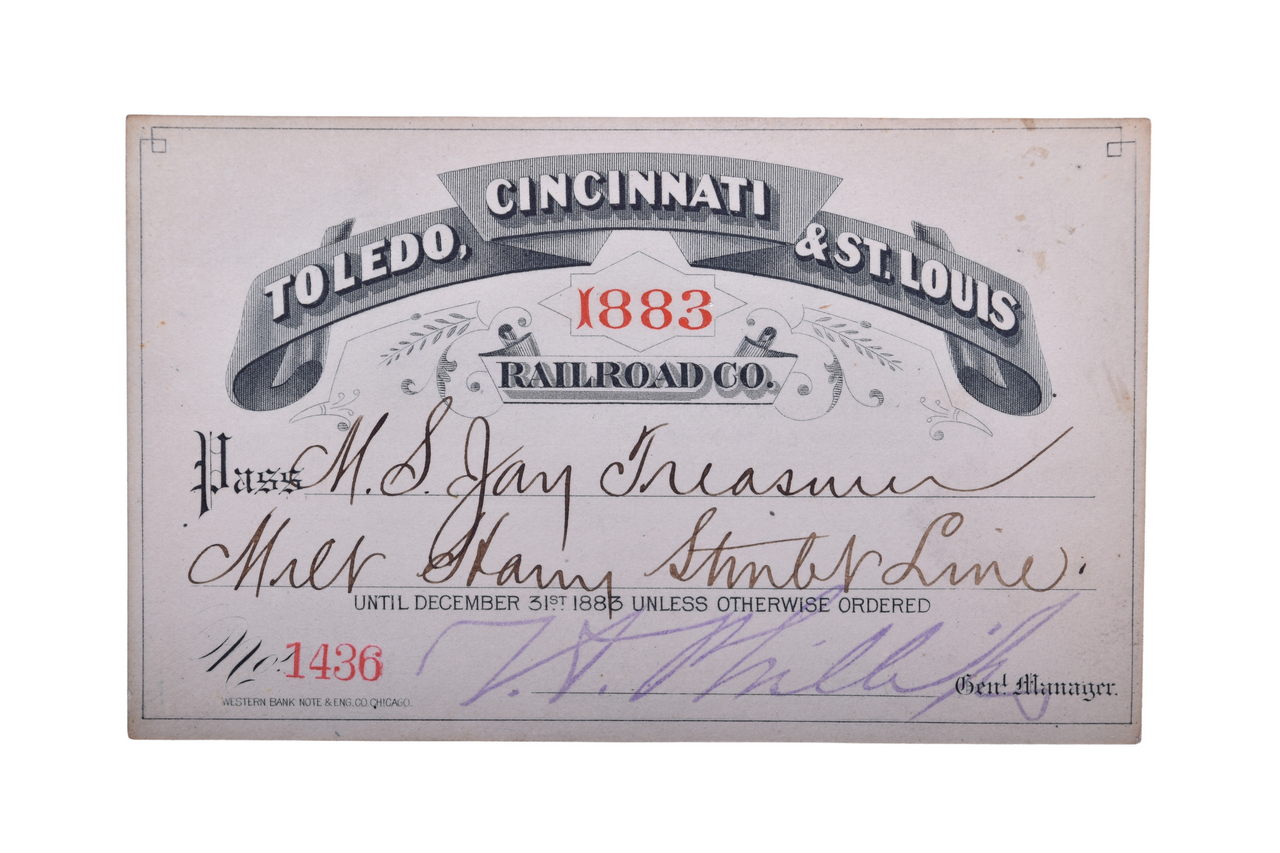 TOLEDO, CINCINNATI & ST. LOUIS
1883
RAILROAD CO.
Pass M. S. Jay Treasurer
Line.
UNTIL DECEMBER 31ST 1883 UNLESS OTHERWISE ORDERED
No. 1436
T. H. Phillips Genl. Manager.
WESTERN BANK NOTE & ENG. CO. CHICAGO.